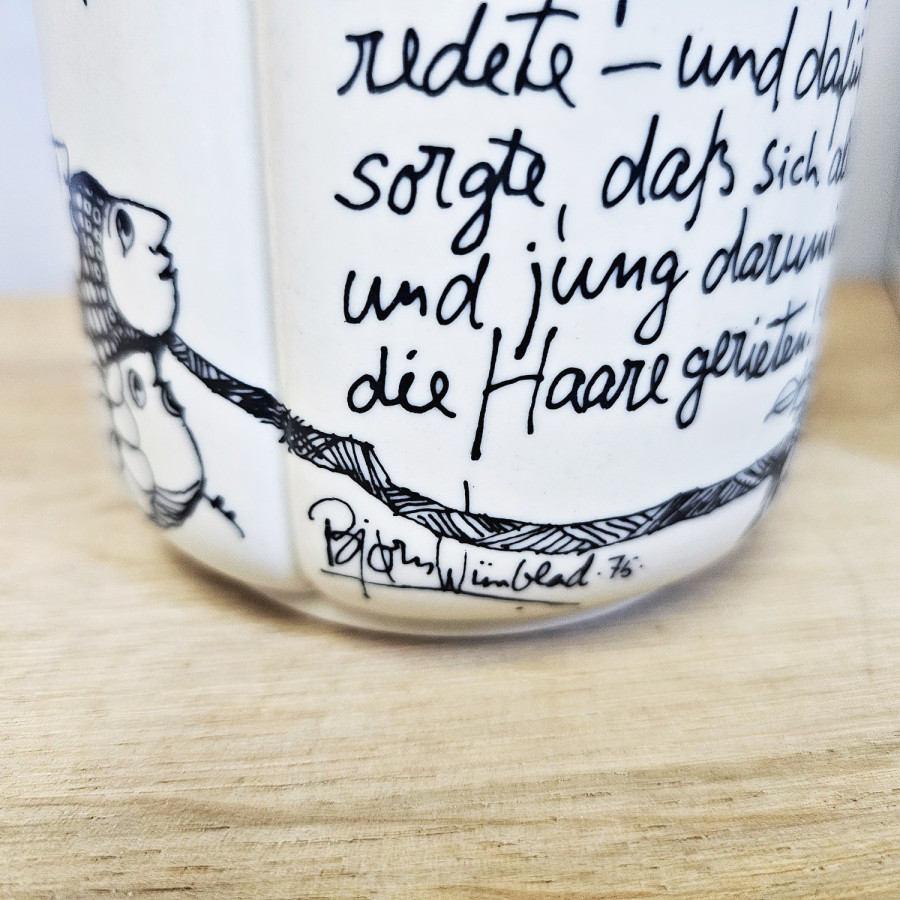 redete – und dafür
sorgte, daß sich
und jung darum
die Haare gerieten.
Bjørn Wiinblad. 75.